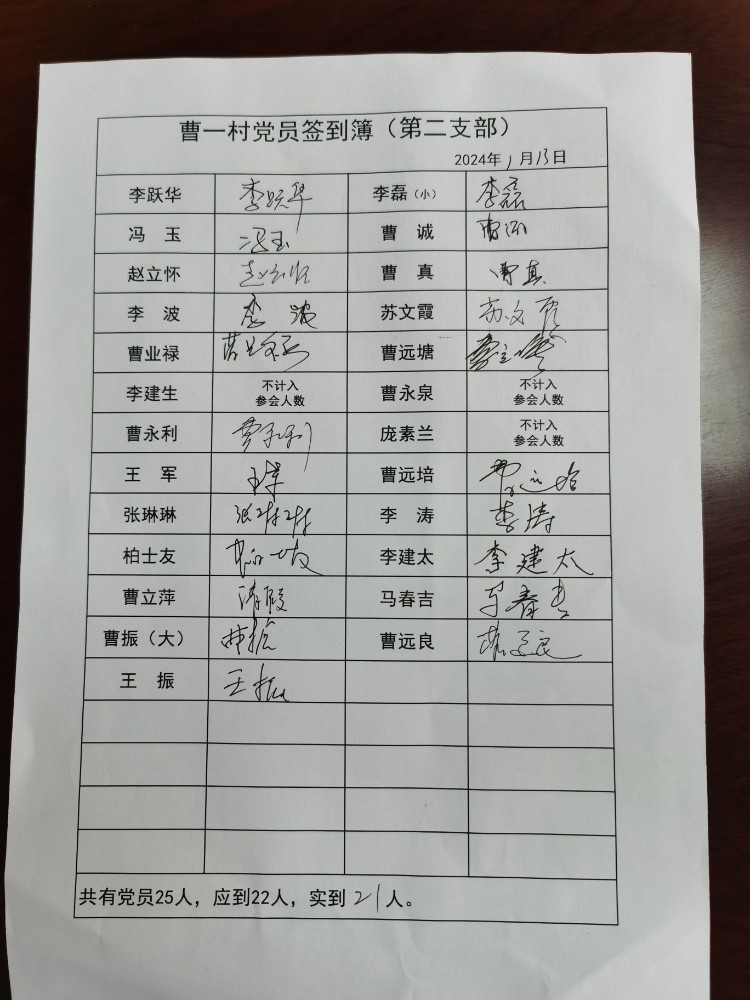 曹一村党员签到簿（第二支部）
2024年1月13日
李跃华 李跃华 李磊（小） 李磊
冯 玉 冯玉 曹 诚
赵立怀 曹 真 曹真
李 波 李 波 苏文霞 苏文霞
曹业禄 曹远塘
李建生 不计入 参会人数 曹永泉 不计入 参会人数
曹永利 曹永利 庞素兰 不计入 参会人数
王 军 王军 曹远培 曹远培
张琳琳 张琳琳 李 涛 李涛
柏士友 李建太 李建太
曹立萍 马春吉 马春吉
曹振（大） 曹振 曹远良
王 振 王振
共有党员25人，应到22人，实到21人。